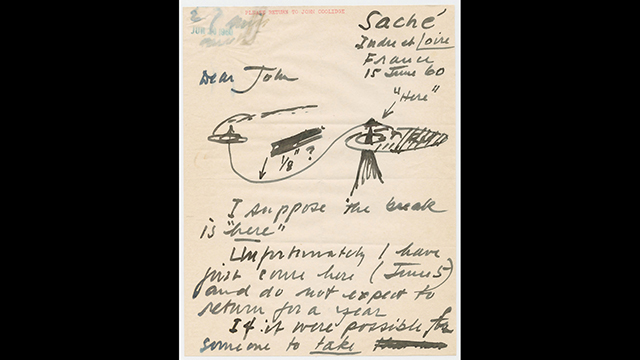 PLEASE RETURN TO JOHN COOLIDGE
JUN
Saché
Indre et Loire
France
15 June 60
Dear John
"Here"
1/8" ?
I suppose the break
is "here"
Unfortunately I have
just come here (June 5)
and do not expect to
return for a year
If it were possible for
someone to take